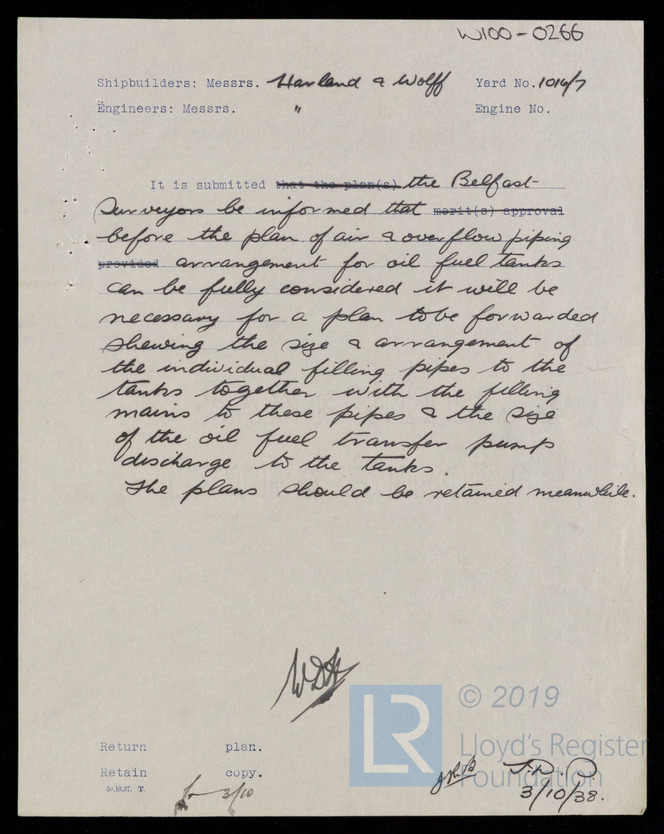 W100-0266
Shipbuilders: Messrs. Harland & Wolff Yard No. 1016/7
Engineers: Messrs. " Engine No.
It is submitted that the plan(s) the Belfast
Surveyors be informed that merit(s) approval
before the plan of air & overflow piping
provided arrangement for oil fuel tanks
can be fully considered it will be
necessary for a plan to be forwarded
shewing the size & arrangement of
the individual filling pipes to the
tanks together with the filling
mains to these pipes & the size
of the oil fuel transfer pump
discharge to the tanks.
The plans should be retained meanwhile.
© 2019
LR Lloyd's Register
Foundation
Return plan.
Retain copy.
3/10
3/10/38.